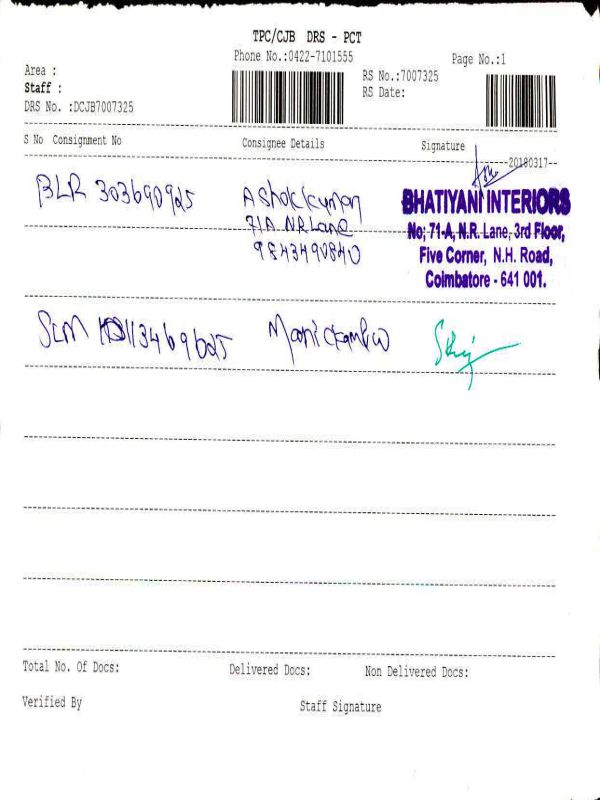 TPC/CJB DRS - PCT
Phone No.:0422-7101555
Page No.:1
Area :
RS No.:7007325
Staff :
RS Date:
DRS No. :DCJB7007325
S No Consignment No Consignee Details Signature
20180317
BLR 303690925 Ashokkumar
71A NR Lane
9843490840
BHATIYANI INTERIORS
No; 71-A, N.R. Lane, 3rd Floor,
Five Corner, N.H. Road,
Coimbatore - 641 001.
SLM
Total No. Of Docs: Delivered Docs: Non Delivered Docs:
Verified By Staff Signature